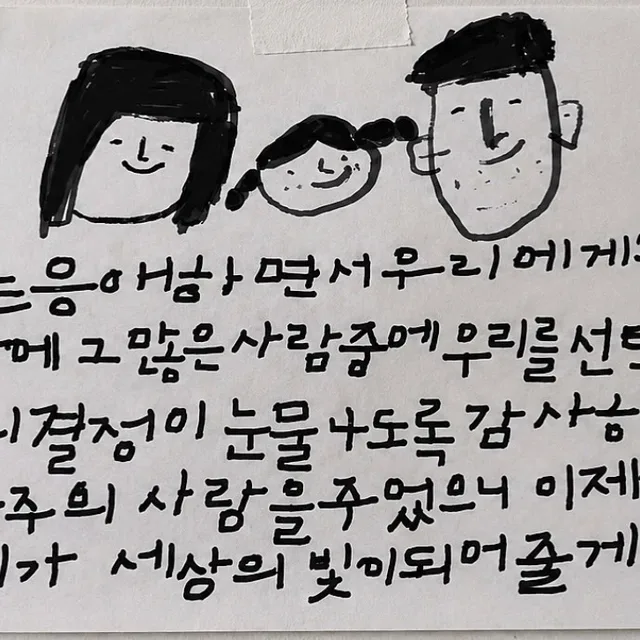 응애하면서 우리에게
그 많은 사람중에 우리를 선택
결정이 눈물나도록 감사
주의 사람을 주었으니 이제
세상의 빛이되어줄게